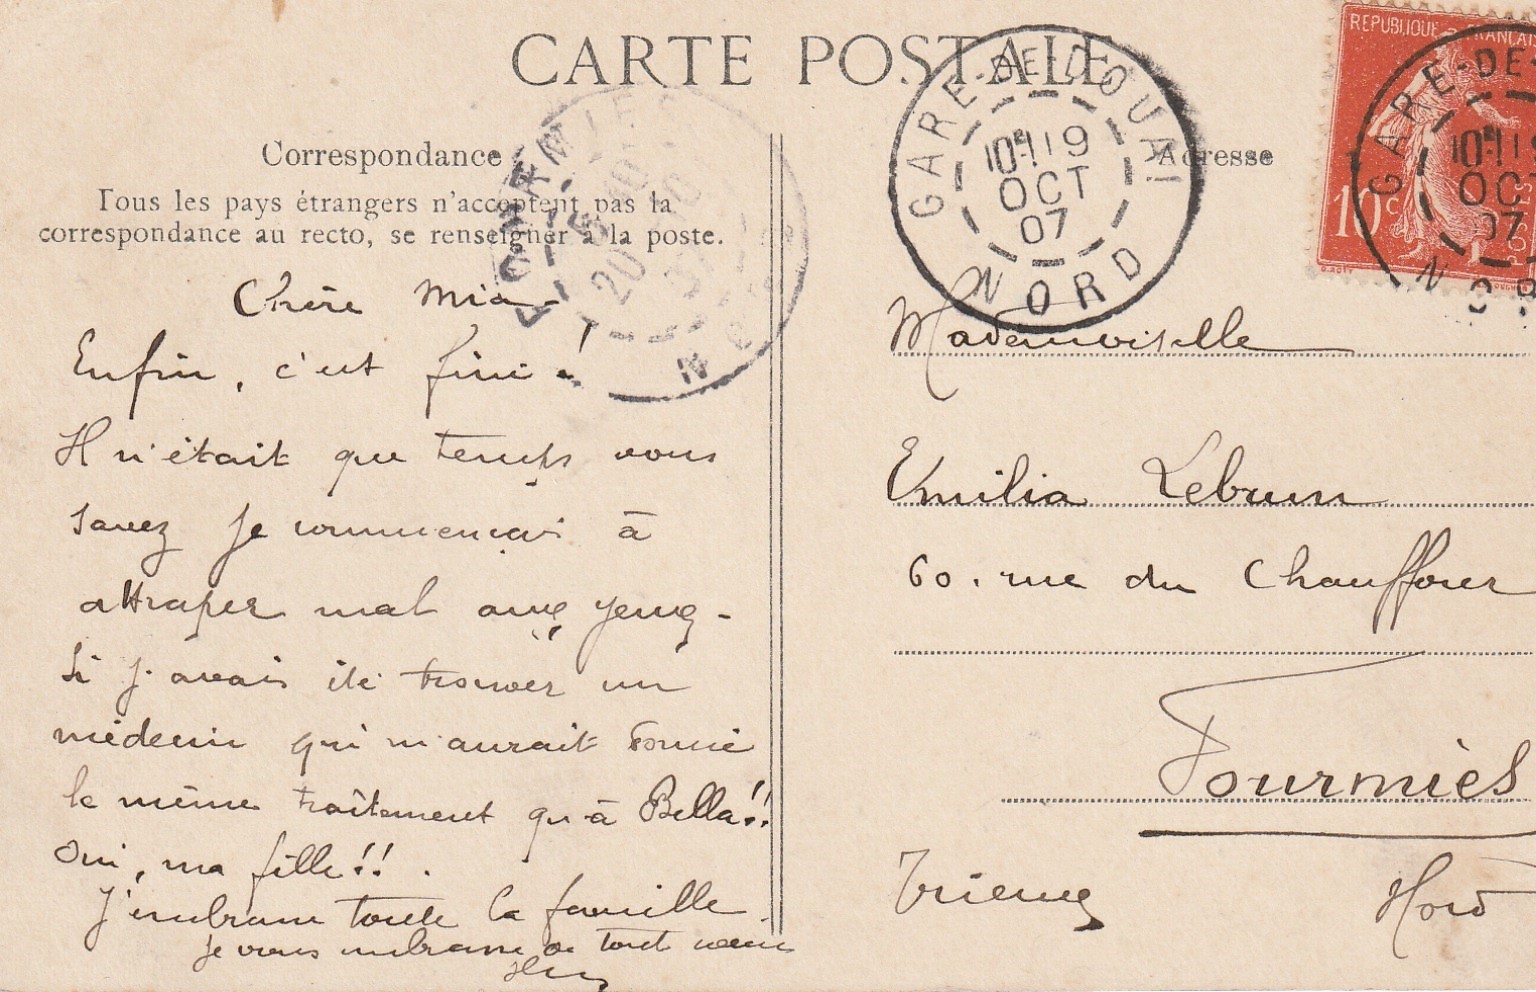 CARTE POSTALE
Correspondance
Tous les pays étrangers n'acceptent pas la
correspondance au recto, se renseigner à la poste.
Chère Mia
Enfin, c'est fini !
Il n'était que temps vous
savez je commençais à
attraper mal aux yeux -
Si j'avais été trouver un
médecin qui m'aurait donné
le même traitement qu'à Bella!!
Oui, ma fille!! .
J'embrasse toute la famille
Je vous embrasse de tout cœur
GARE-DE-DOUAI
10H 19
OCT
07
NORD
Adresse
REPUBLIQUE FRANÇAI
10c
GARE-DE-
10H 19
OCT
07
Mademoiselle
Emilia Lebrun
60. rue du Chauffour
Fourmies
Nord